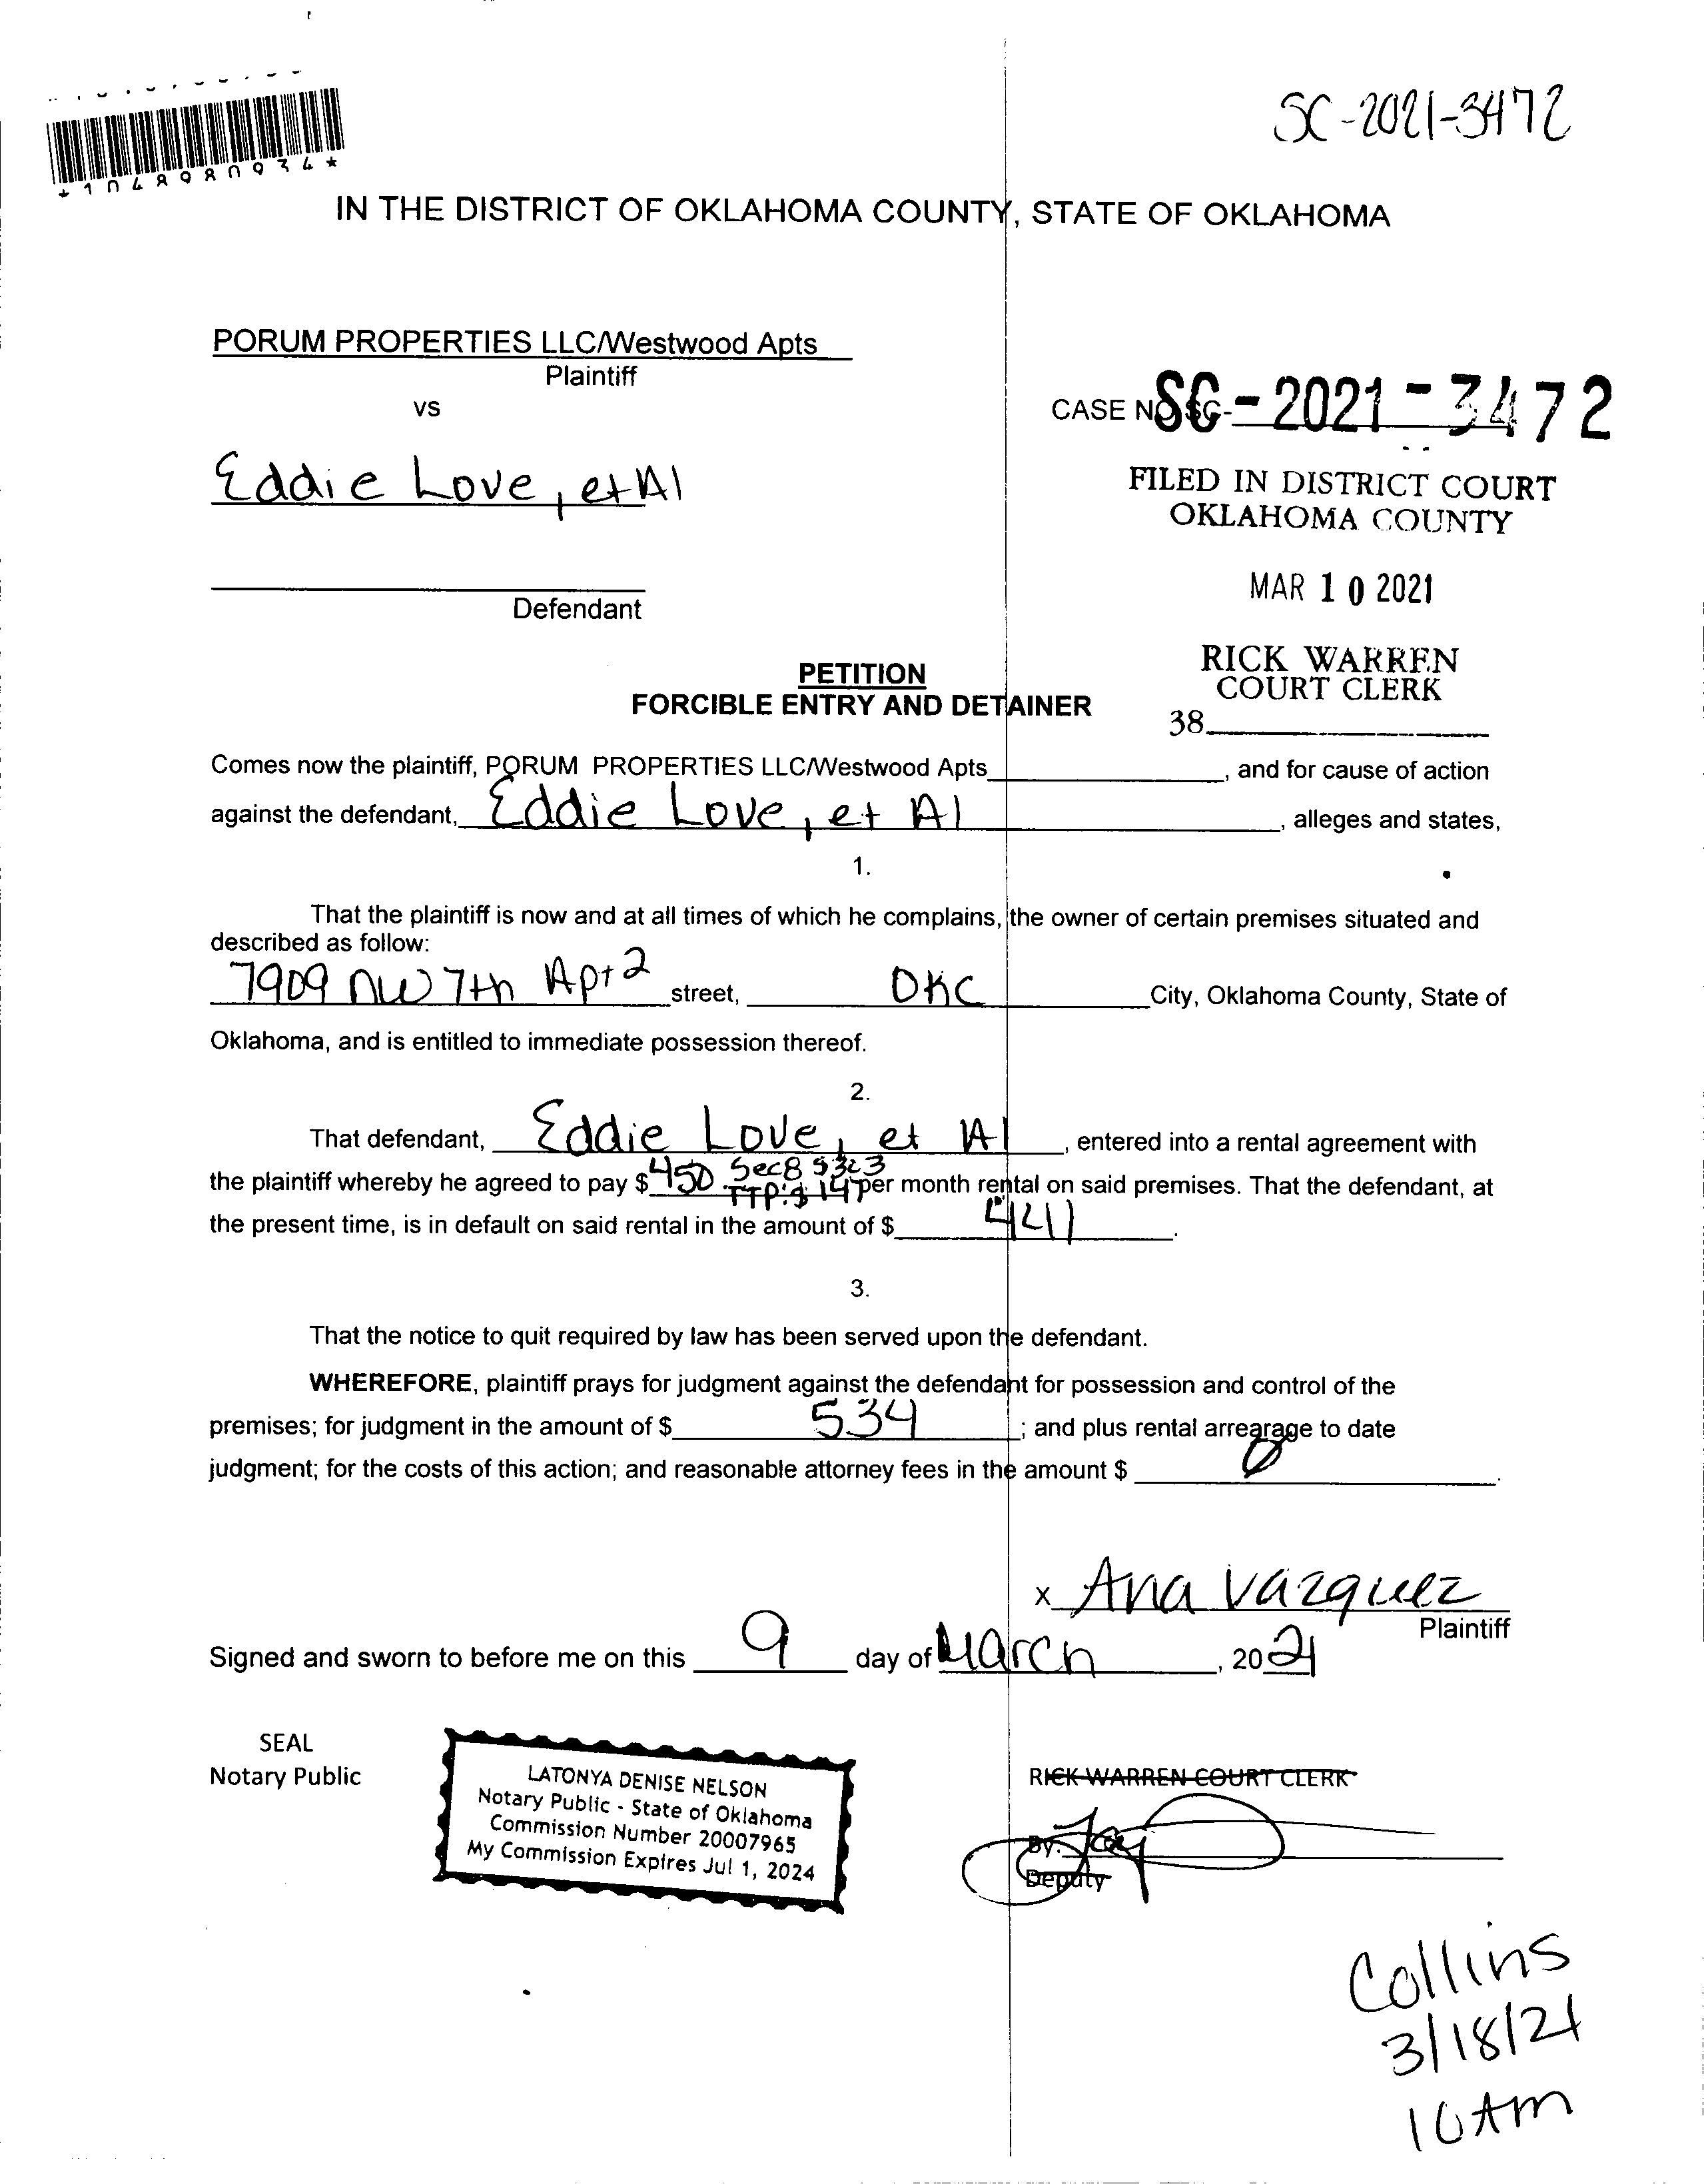 SC-2021-3472
IN THE DISTRICT OF OKLAHOMA COUNTY, STATE OF OKLAHOMA
PORUM PROPERTIES LLC/Westwood Apts
Plaintiff
vs
CASE NO SC-
SC-2021-3472
Eddie Love, et Al
FILED IN DISTRICT COURT
OKLAHOMA COUNTY
MAR 10 2021
Defendant
RICK WARREN
COURT CLERK
38
PETITION
FORCIBLE ENTRY AND DETAINER
Comes now the plaintiff, PORUM PROPERTIES LLC/Westwood Apts, and for cause of action
against the defendant, Eddie Love, et Al, alleges and states,
1.
That the plaintiff is now and at all times of which he complains, the owner of certain premises situated and
described as follow:
7909 NW 7th Apt 2 street, OKC City, Oklahoma County, State of
Oklahoma, and is entitled to immediate possession thereof.
2.
That defendant, Eddie Love, et Al, entered into a rental agreement with
Sec8
the plaintiff whereby he agreed to pay $450 TTP: $147 per month rental on said premises. That the defendant, at
the present time, is in default on said rental in the amount of $ 441.
3.
That the notice to quit required by law has been served upon the defendant.
WHEREFORE, plaintiff prays for judgment against the defendant for possession and control of the
premises; for judgment in the amount of $ 534; and plus rental arrearage to date
judgment; for the costs of this action; and reasonable attorney fees in the amount $ 0.
x Ana Vazquez
Plaintiff
Signed and sworn to before me on this 9 day of March, 2021
SEAL
Notary Public
LATONYA DENISE NELSON
Notary Public - State of Oklahoma
Commission Number 20007965
My Commission Expires Jul 1, 2024
RICK WARREN COURT CLERK
By:
Deputy
Collins
3/18/21
10 Am